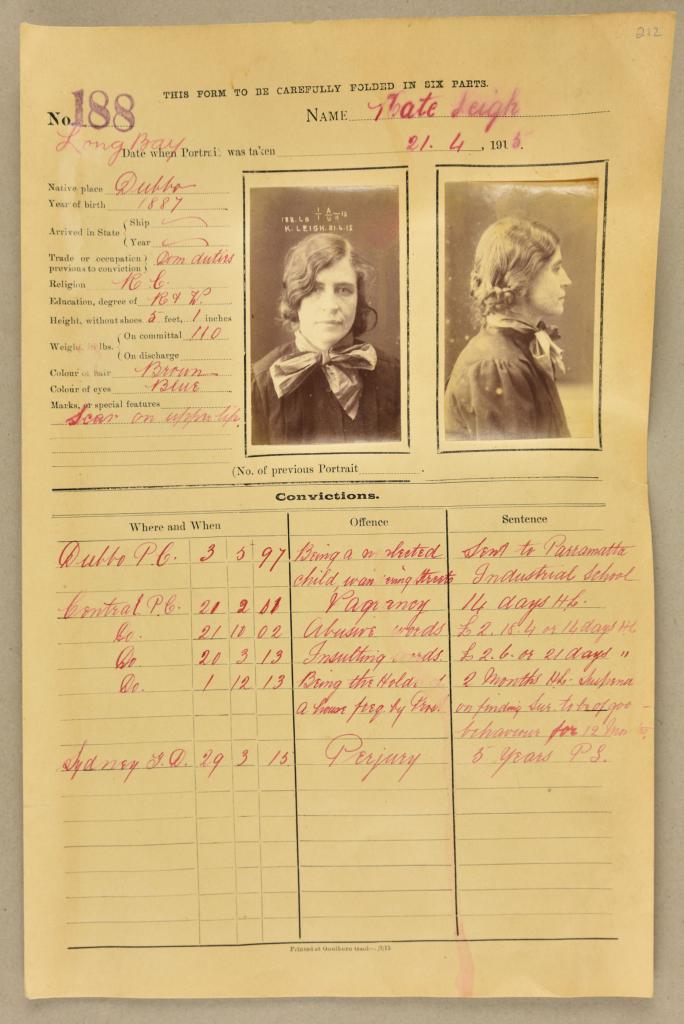 212
THIS FORM TO BE CAREFULLY FOLDED IN SIX PARTS.
No. 188
NAME Kate Leigh
Long Bay
Date when Portrait was taken 21. 4, 1915.
Native place Dubbo
Year of birth 1887
Arrived in State { Ship
Year
Trade or occupation previous to conviction } Dom duties
Religion R C.
Education, degree of R & W.
Height, without shoes 5 feet, 1 inches
Weight in lbs. { On committal 110
On discharge
Colour of hair Brown
Colour of eyes Blue
Marks, or special features
Scar on upper lip
188. LB
K. LEIGH. 21.4.15
(No. of previous Portrait
Convictions.
Where and When Offence Sentence
Dubbo P.C. 3 5 97 Being a neglected Sent to Parramatta
child wandering streets Industrial School
Central P.C. 21 2 01 Vagrancy 14 days H.L.
Do. 21 10 02 Abusive words £2. 15. 4 or 14 days H L
Do. 20 3 13 Insulting words. £2. 6. or 21 days "
Do. 1 12 13 Being the Holder 2 Months H.L. Suspend
a house freq by Pros. on finding Sur. to be of goo
behaviour for 12 Mon
Sydney Q.S. 29 3 15. Perjury 5 Years P.S.
Printed at Goulburn Gaol